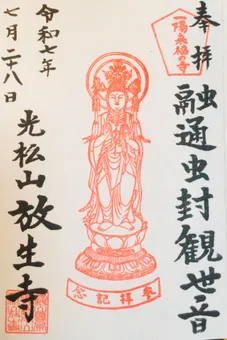 奉拝
一陽来福の寺
融通虫封観世音
參拝記念
令和七年
七月二十八日
光松山 放生寺